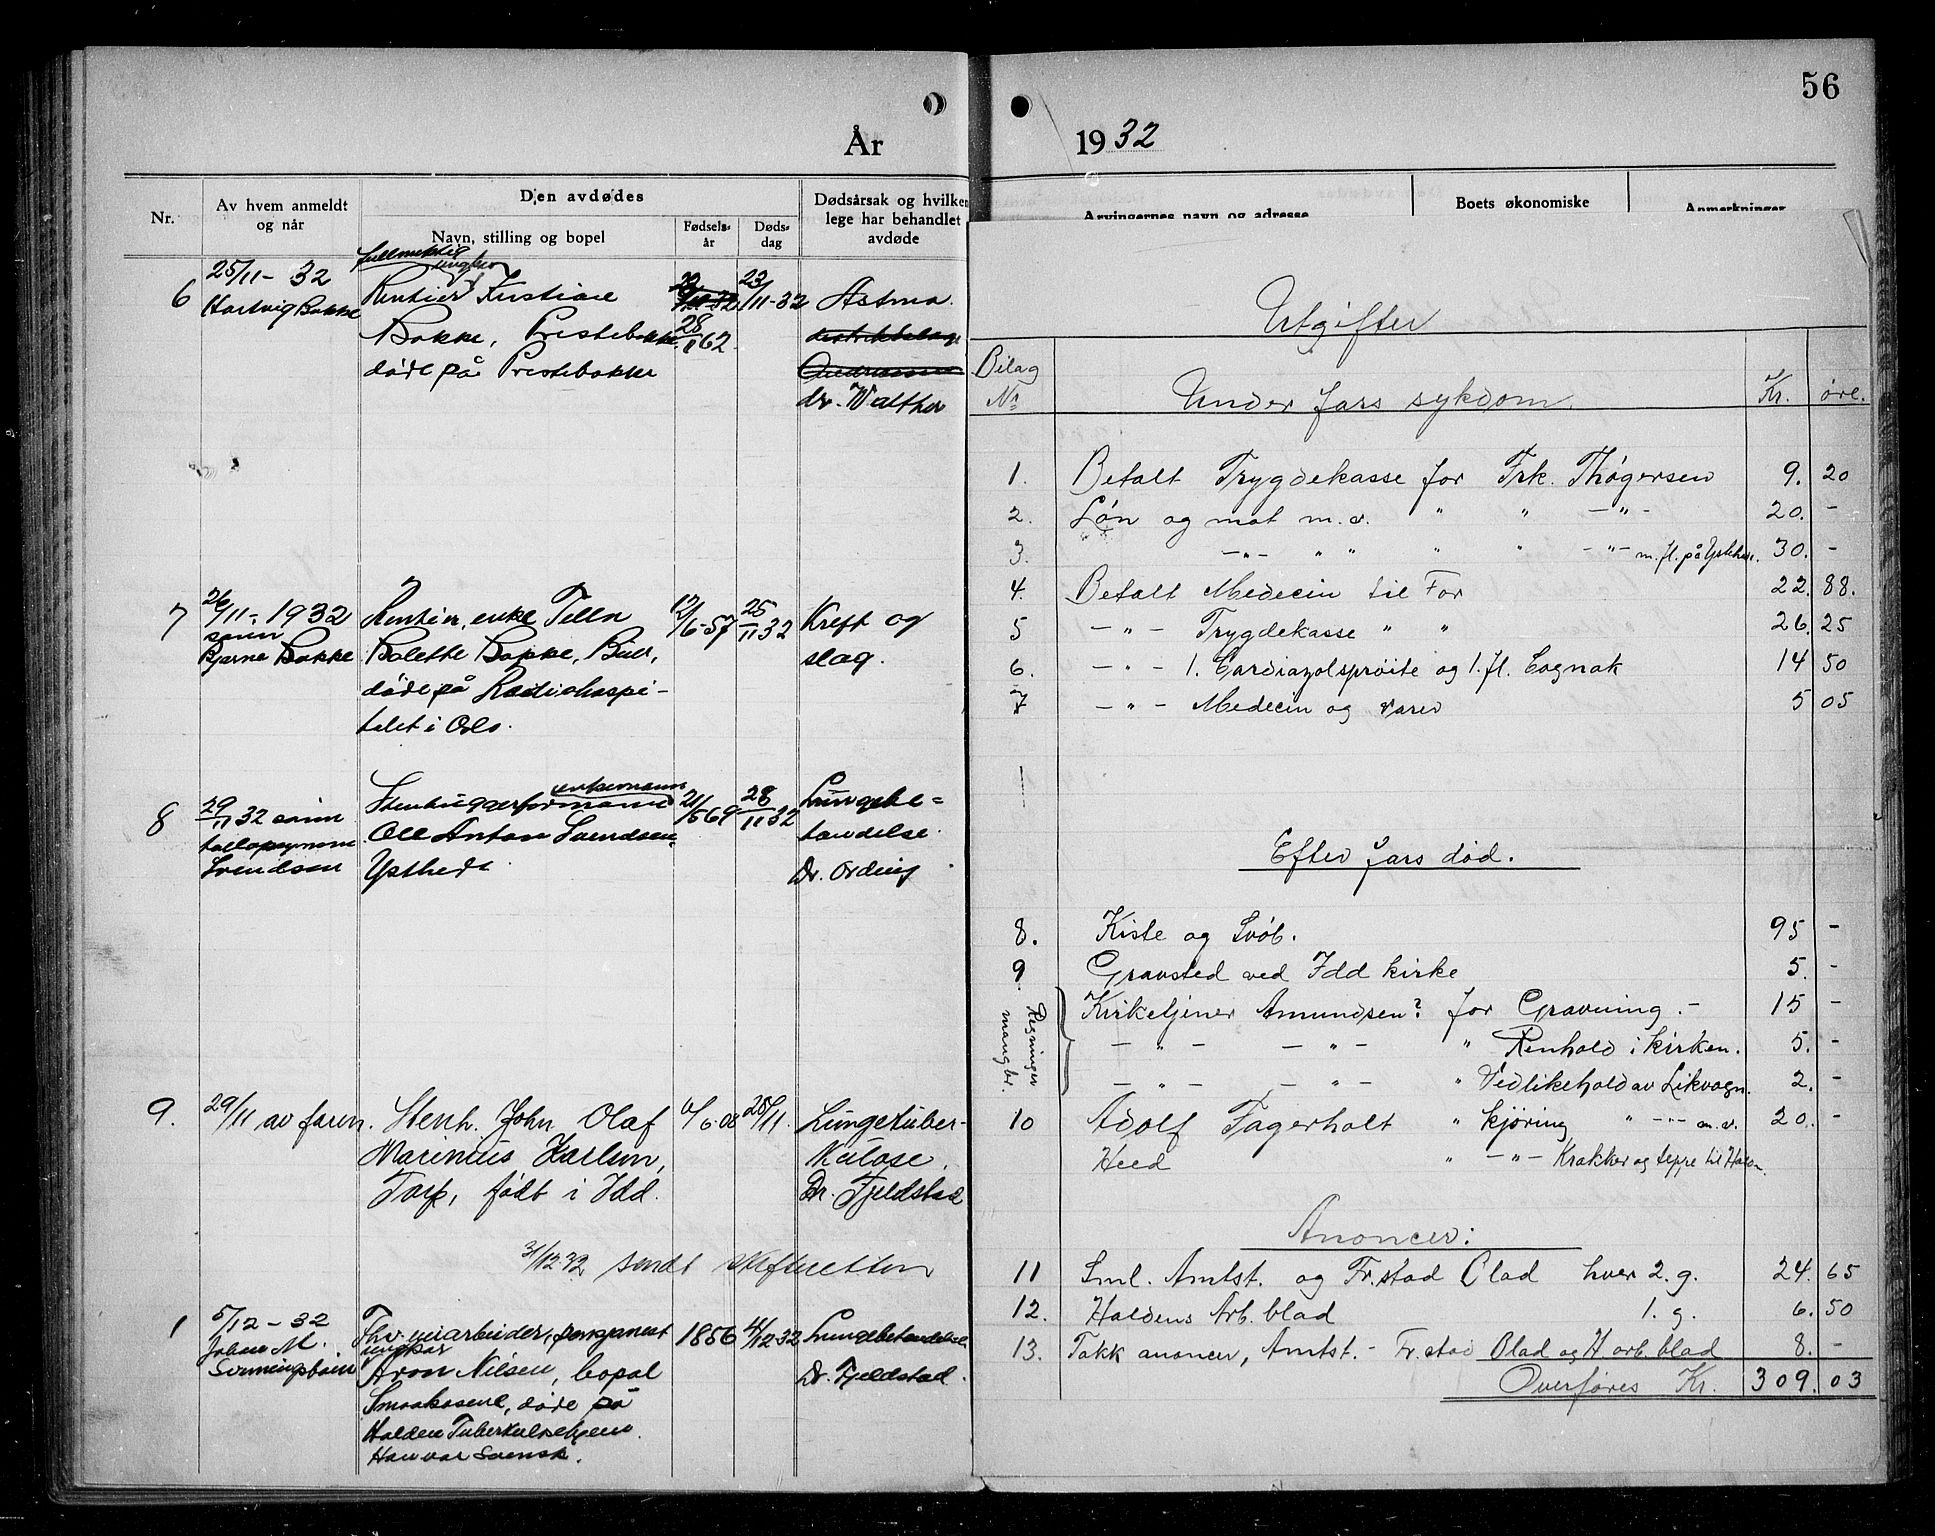 56
År 1932
Nr.
Av hvem anmeldt
og når
Den avdødes
Navn, stilling og bopel
Fødsels-
år
Døds-
dag
Dødsårsak og hvilken
lege har behandlet
avdøde
Arvingernes navn og adresse
Boets økonomiske
Anmerkninger
6
25/11-32
Hartvig Bakke
fullmektig
ungkar
Rentier Kristian
Bakke, Prestebakke
døde på Prestebakke
28/11 62
23/11-32
Astma
dr. Walther
7
26/11-1932
sønn
Bjarne Bakke
Rentier, enke Tella
Bolette Bakke, Buer,
døde på Radiohospi-
talet i Oslo.
12/6-57
25/11 32
Kreft og
slag.
8
29/11 32 sønn
Svendsen
enkemann
Stenhuggerformann
Ole Anton Svendsen,
Ystehede
21/5 69
28/11 32
Lungebe-
tendelse.
Dr. Ording
9.
29/11 av faren.
Stenh. John Olaf
Marinius Karlson,
Torp, født i Idd.
6-08
28/11.
Lungetuber-
kulose.
Dr. Fjeldstad
31/12 32 sendt Skifteretten
1
5/12-32
Johan M.
Svenningsbøen
Fhv. veiarbeider,
ungkar
Aron Nilsen, bopel
døde på
Halden Tuberkulosehjem.
Han var Svensk.
1856
4/12 32
Lungebetendelse
Dr. Fjeldstad.
Utgifter
Bilag
Nr.
Under fars sykdom.
Kr. øre.
1. Betalt Trygdekasse for Frk. Thøgersen 9. 20
2. Løn og mat m.v. " " -"- 20. -
3. -"- " " " " -"- m.fl. på Ystehede. 30. -
4. Betalt Medecin til Far 22. 88.
5 -"- Trygdekasse " " 26. 25
6. -"- 1. Cardiazolsprøite og 1. fl. Cognak 14 50
7 -"- Medecin og varer 5 05
Efter fars død.
8. Kiste og Svøb. 95 -
9. Gravsted ved Idd kirke 5. -
Regninger
mangler.
Kirketjener Amundsen? for Gravning. - 15 -
-"- -"- " Renhold i kirken. 5. -
-"- -"- " Vedlikehold av Likvogn. 2. -
10 Adolf Fagerholt " kjøring " -"- m.v. 20. -
Heed " -"- Krakker og teppe til
Anoncer:
11 Sml. Amtst. og Fr.stad Blad hver 2. g. 24. 65
12. Haldens Arb. blad 1. g. 6. 50
13. Takk anoncer, Amtst. - Fr.stad Blad og H arb. blad 8. -
Overføres Kr. 309. 03